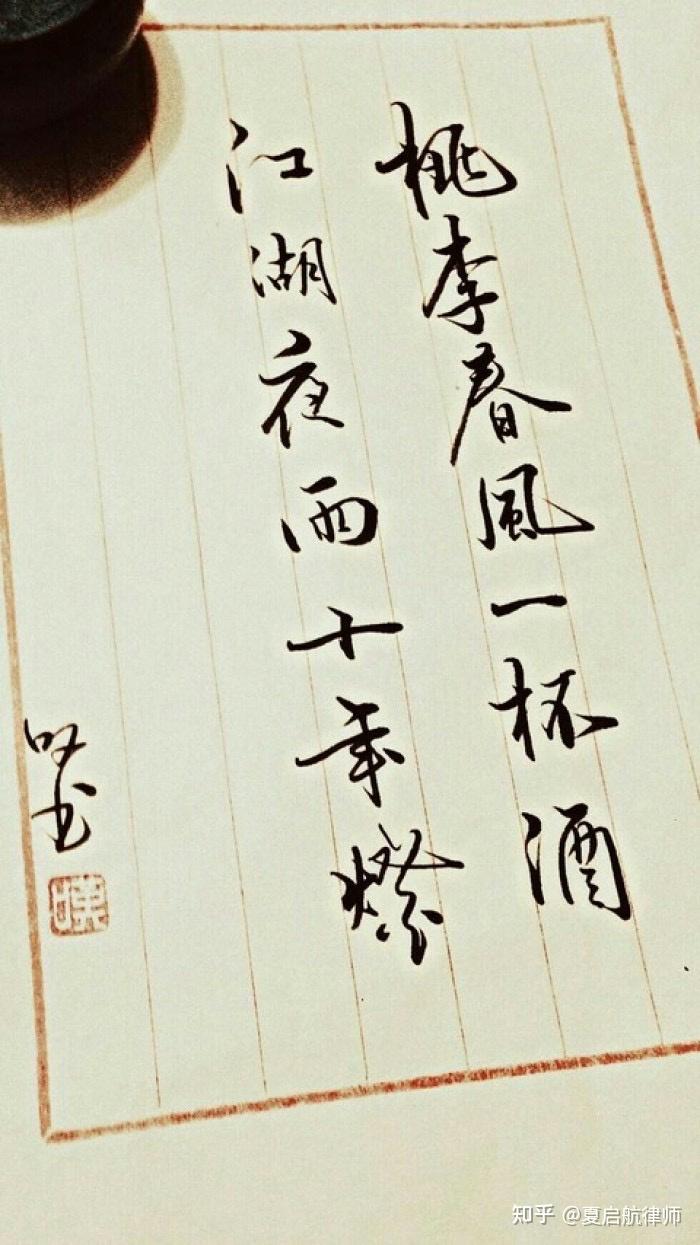 桃李春風一杯酒
江湖夜雨十年燈
知乎 @夏启航律师